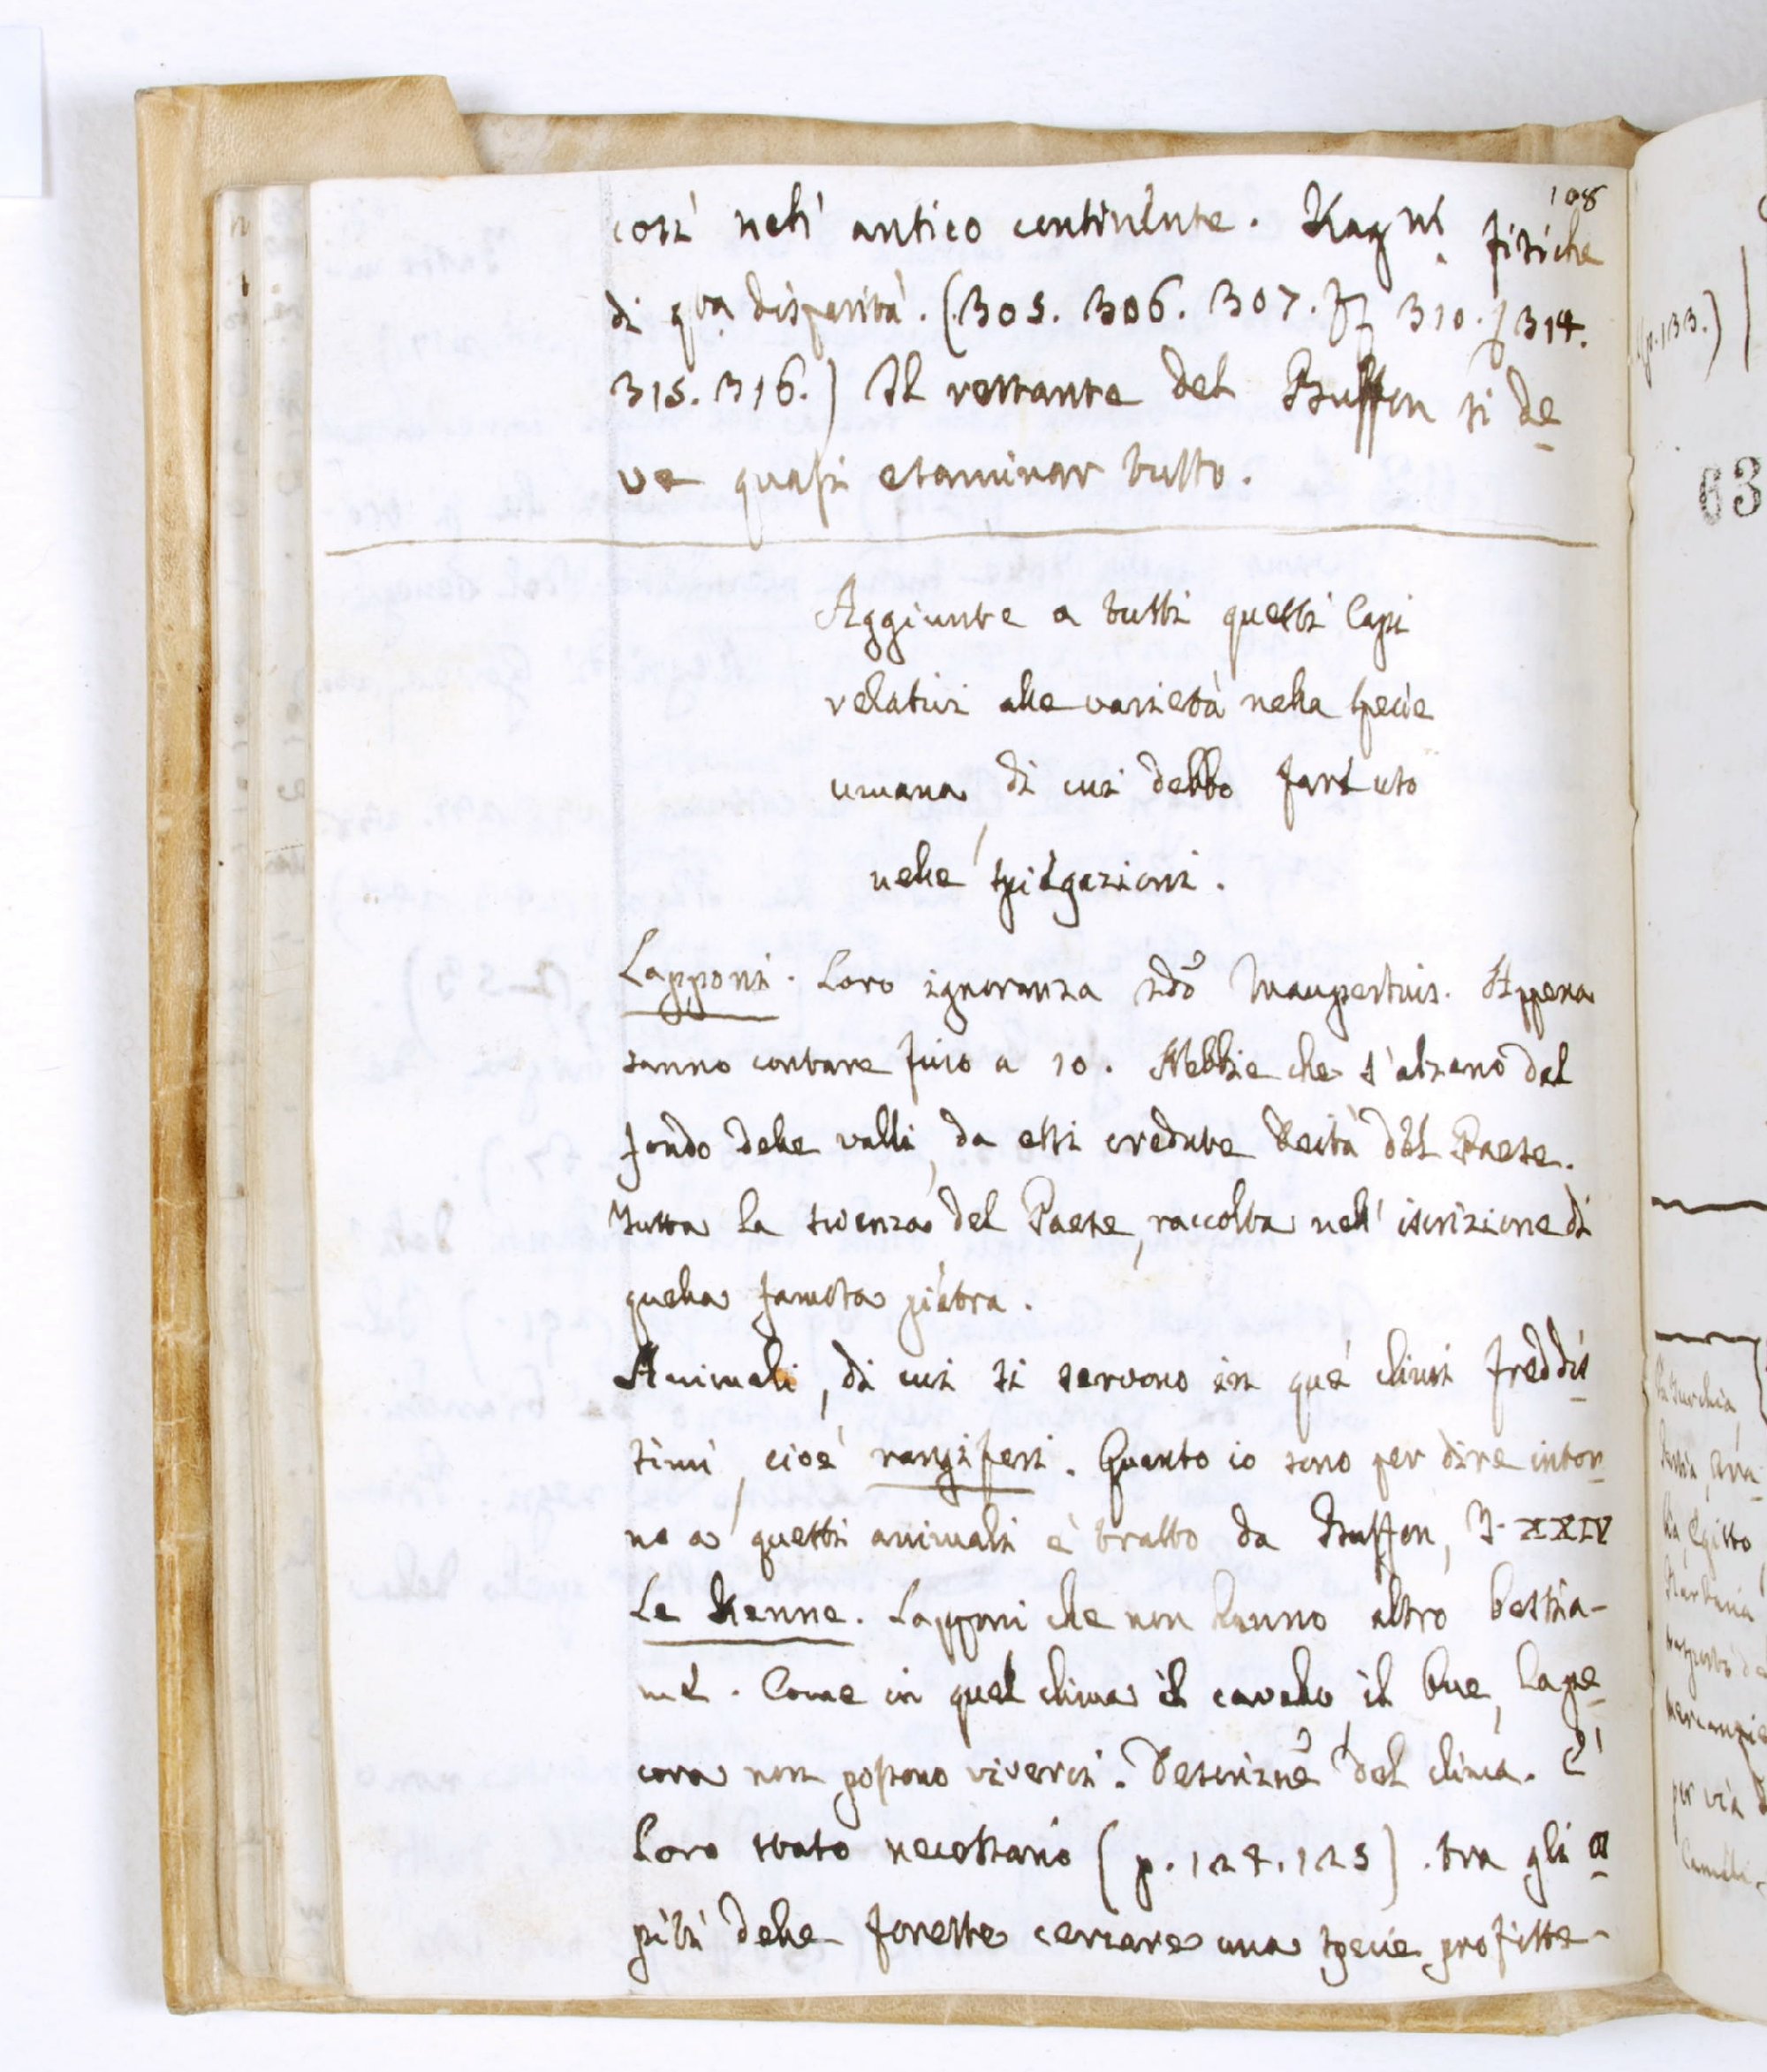 108
così nell' antico continente. Ragni fisiche
di qta disparità. (305. 306. 307. ff 310. f 314.
315. 316.) Il restante del Buffon si de
ve quasi esaminar tutto.
Aggiunte a tutti questi Capi
relativi alle varietà nella specie
umana, di cui debbo farè uso
nelle spiegazioni.
Lapponi. Loro ignoranza sdo Maupertuis. Appena
sanno contare fino a 10. Nebbie che s'alzano dal
fondo delle valli, da essi credute Deità del Paese.
Tutta la scienza del Paese, raccolta nell' iscrizione di
quella famosa pietra.
Animali, di cui si servono in que' climi freddis
simi, cioè rangiferi. Quanto io sono per dire intor
no a questi animali è tratto da Buffon, T. XXIV
Le Renne. Lapponi che non hanno altro bestia-
me. Come in quel clima il cavallo, il bue, la pe
cora non possono viverci. Descrizne del clima. E'
loro stato necessario (p. 124. 125). tra gli a
piti delle foreste cercare una specie profitte-
(p. 133.)
63
Turchia,
Egitto
per via